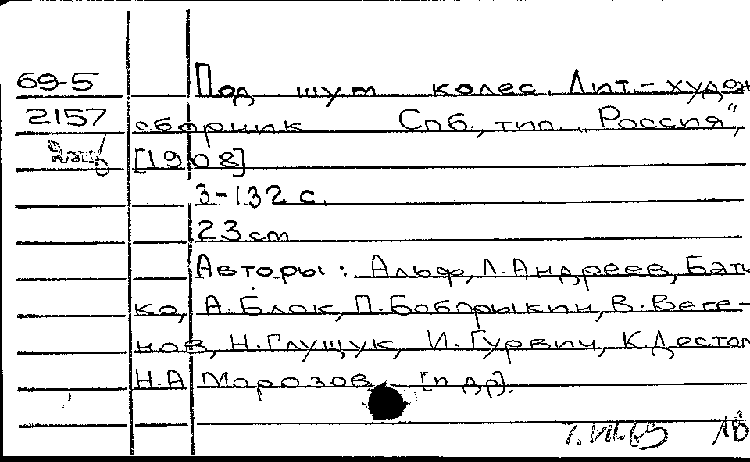 69-5 Под шум колес. Лит.-худож
2157 сборник Спб., тип. "Россия",
[1908]
3-132 с.
23 cm
Авторы: Альф, Л. Андреев, Бать
ко, А. Блок, П. Боборыкин, В. Веге-
нов, Н. Глущук, И. Гурвич, К. Достоп
Н.А Морозов [и др].